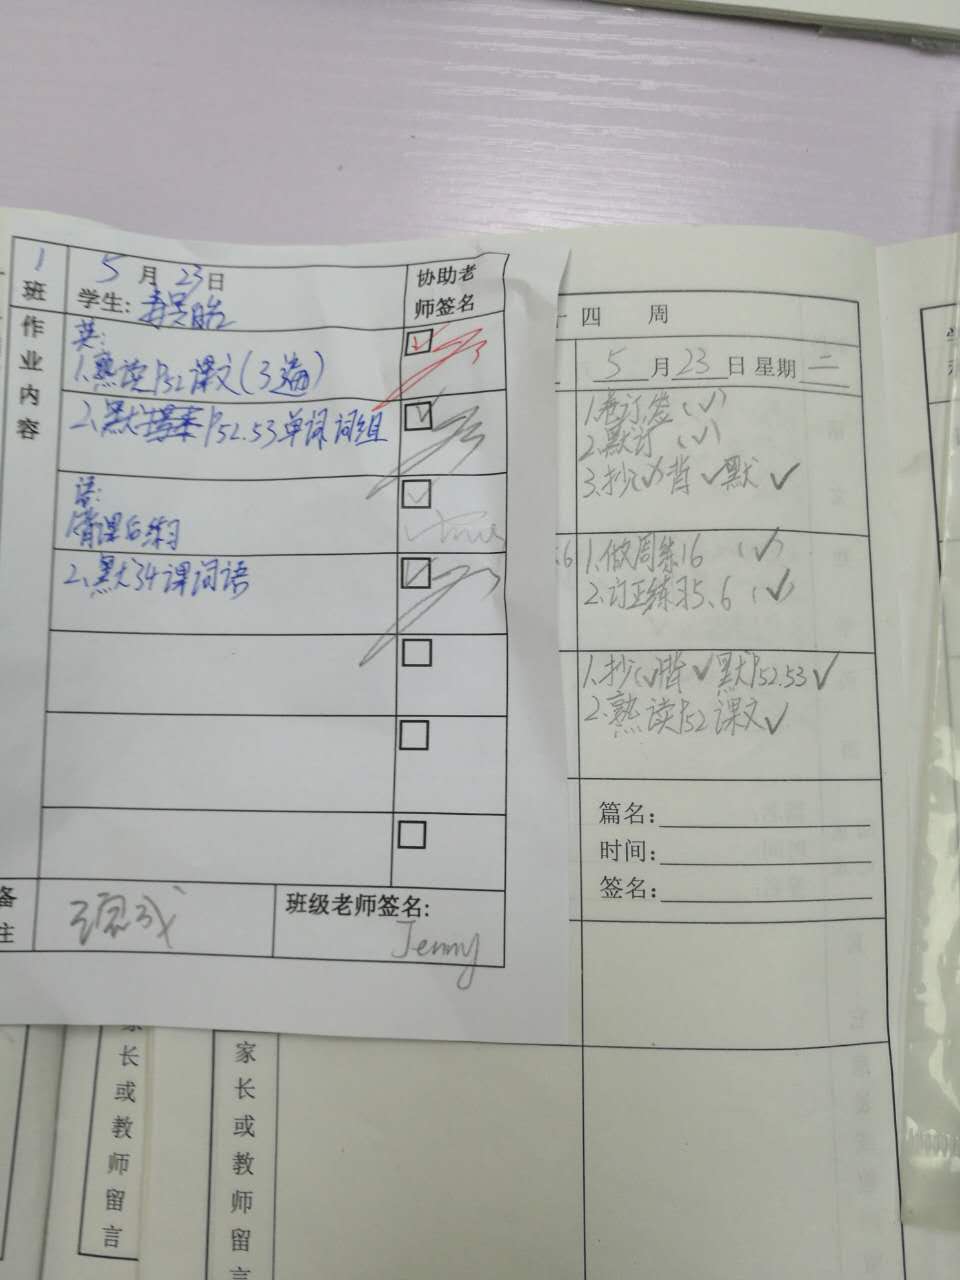 1
班
5月23日
学生:
协助老
师签名
作业内容
英:
1.熟读P52课文(3遍)
2.默 P52.53单词词组
语:
1.背课后练习
2.默34课词语
备注
班级老师签名:
Jenny
十四 周
5月23日 星期二
1.卷订、签(✓)
2.默订(✓)
3.抄(✓)背✓默✓
5.6
1.做周练16(✓)
2.订正练习5、6(✓)
1.抄(✓)背✓默P52.53✓
2.熟读P52课文✓
篇名:
时间:
签名:
家长或教师留言
家长或教师留言